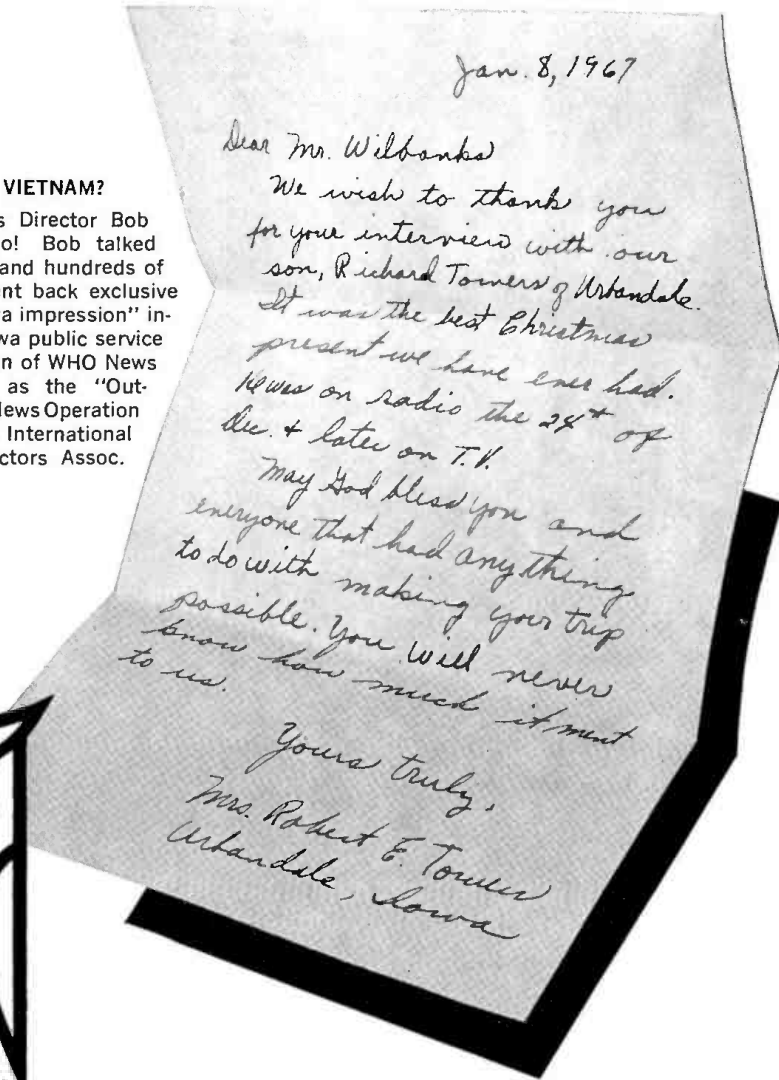 VIETNAM?
s Director Bob
o! Bob talked
and hundreds of
nt back exclusive
a impression" in-
wa public service
n of WHO News
as the "Out-
News Operation
International
ctors Assoc.
Jan. 8, 1967
Dear Mr. Wilbanks
We wish to thank you
for your interview with our
son, Richard Towers of Urbandale.
It was the best Christmas
present we have ever had.
He was on radio the 24th of
Dec. & later on T.V.
May God bless you and
everyone that had anything
to do with making your trip
possible. You will never
know how much it ment
to us.
Yours truly,
Mrs. Robert E. Towers
Urbandale, Iowa